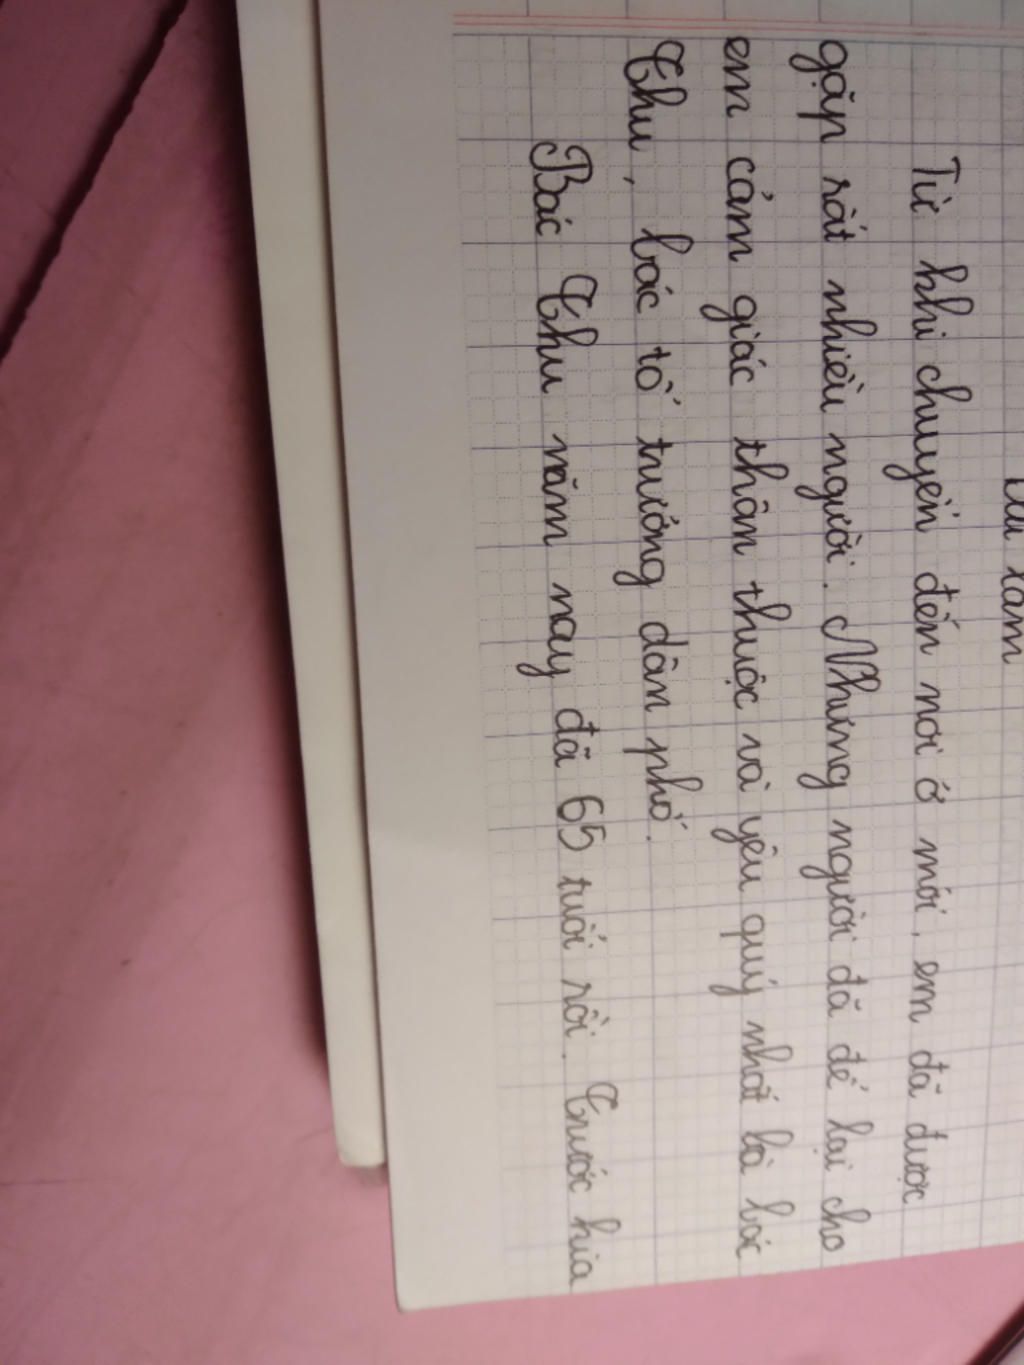 Từ khi chuyển đến nơi ở mới, em đã được
gặp rất nhiều người. Nhưng người đã để lại cho
em cảm giác thân thuộc và yêu quý nhất là bác
Thu, bác tổ trưởng dân phố.
Bác Thu năm nay đã 65 tuổi rồi. Trước kia